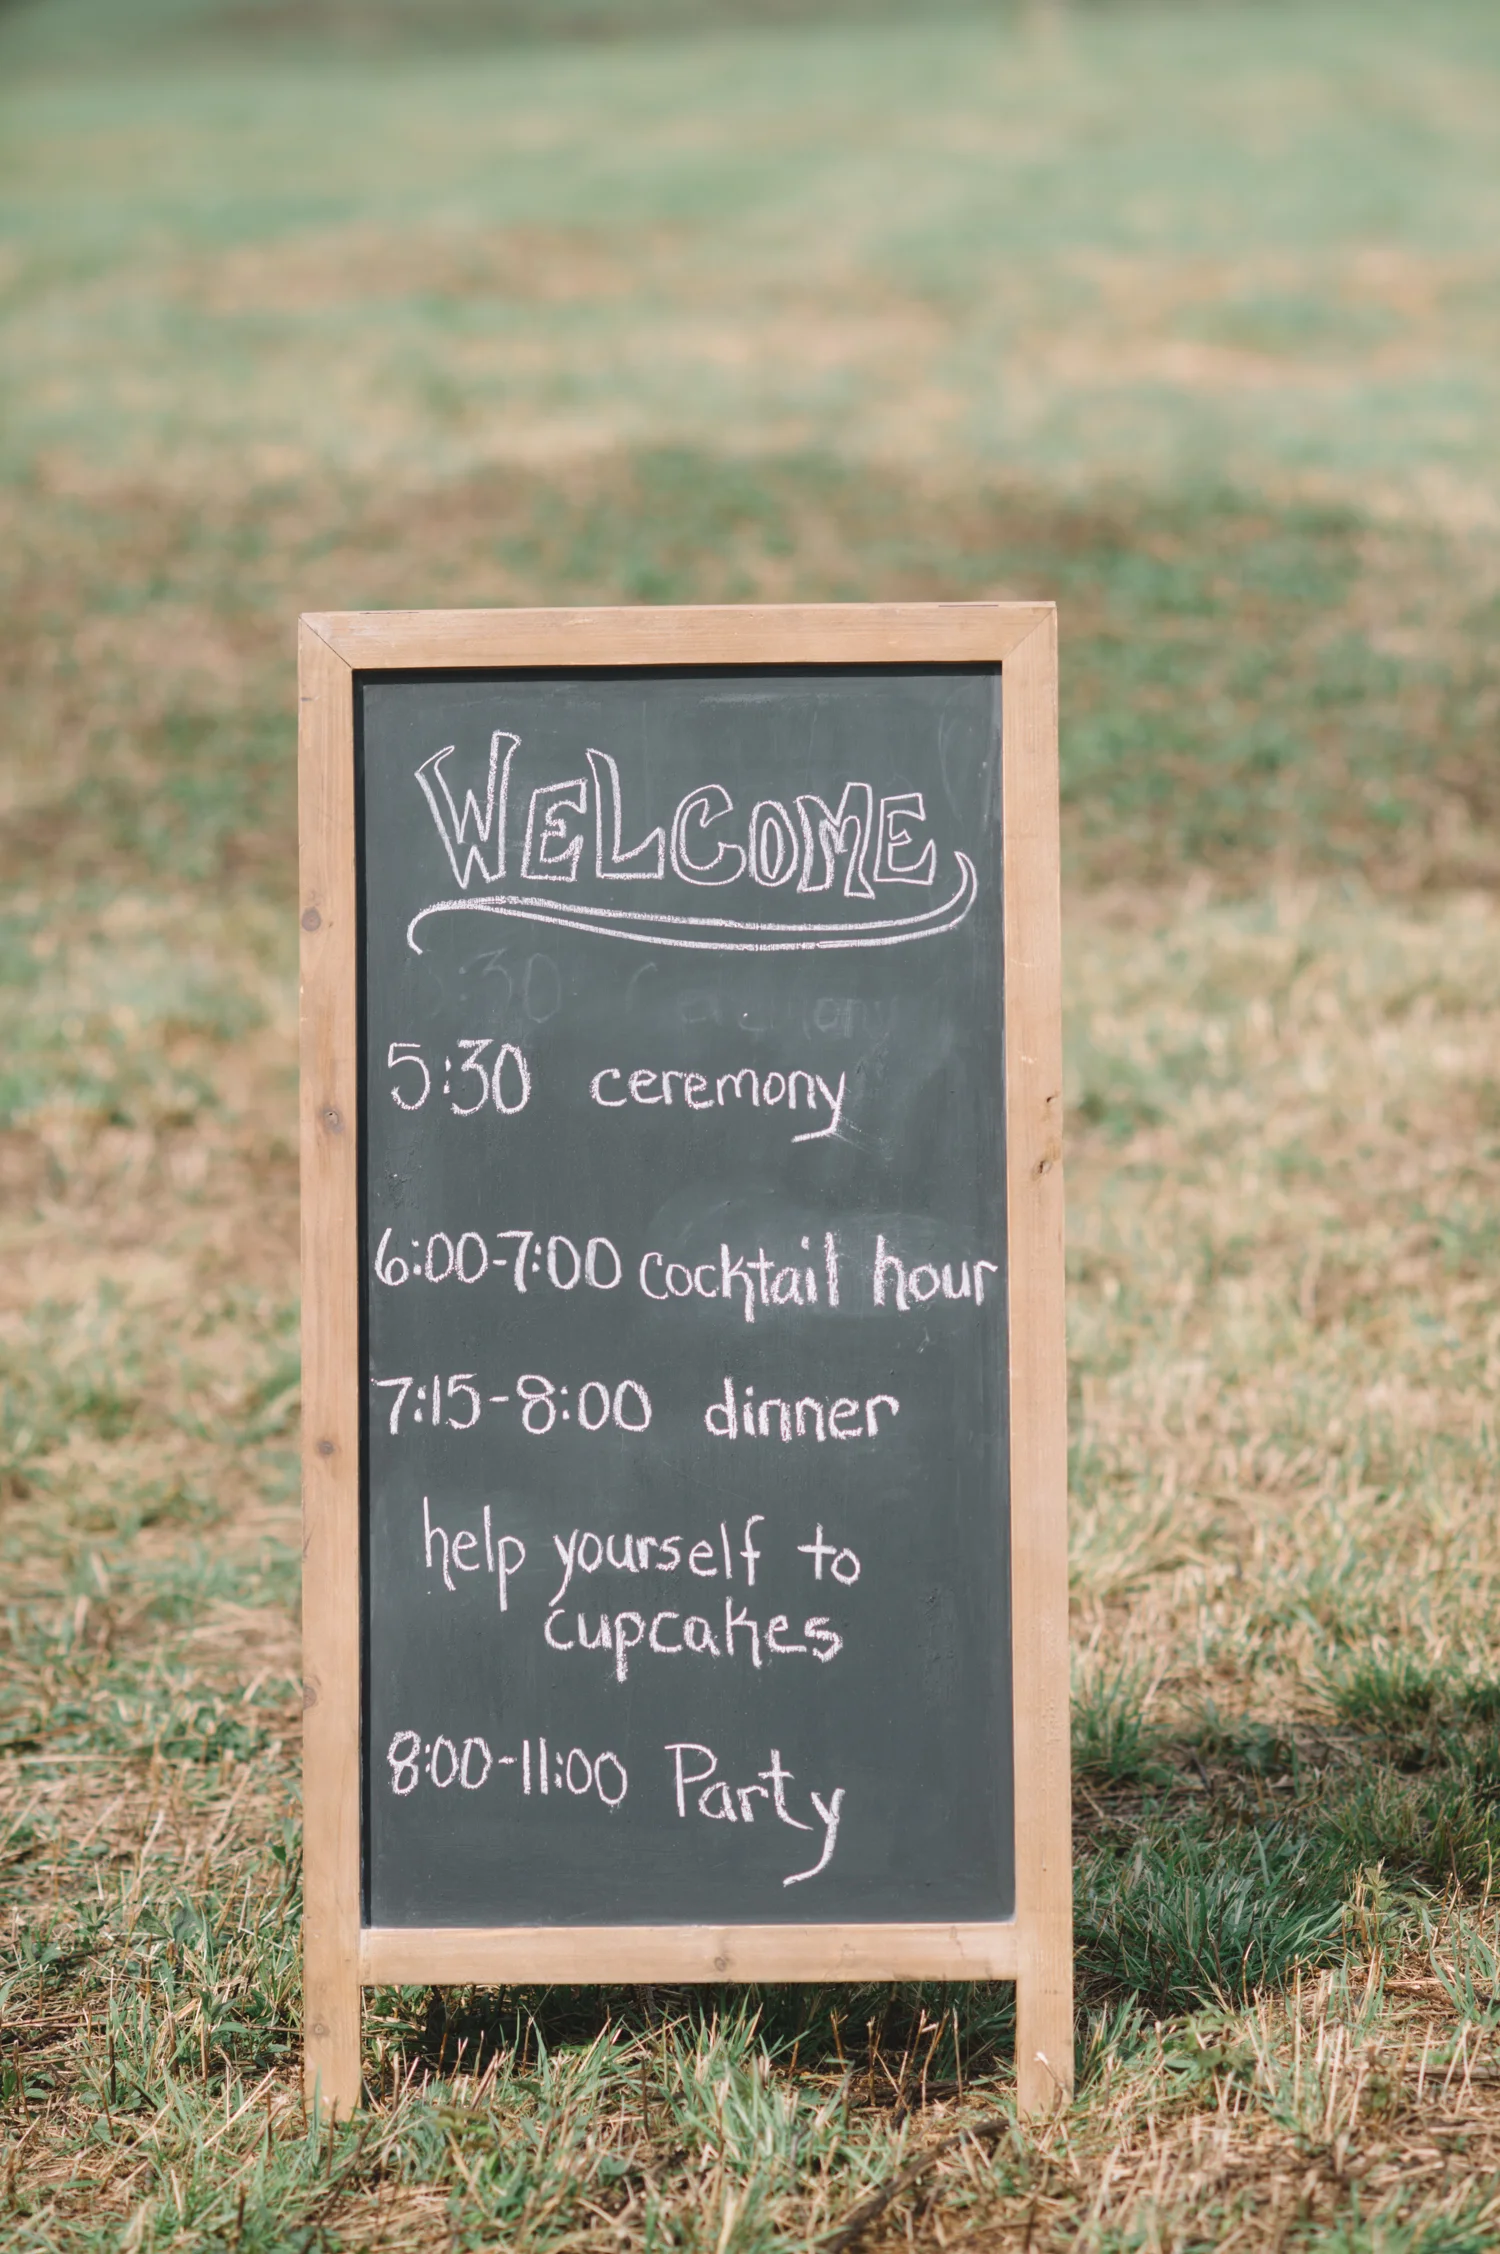 WELCOME
5:30 ceremony
6:00-7:00 cocktail hour
7:15-8:00 dinner
help yourself to
cupcakes
8:00-11:00 Party